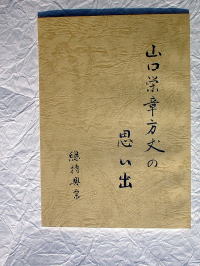 山口栄章方丈の
思い出
總持興宗